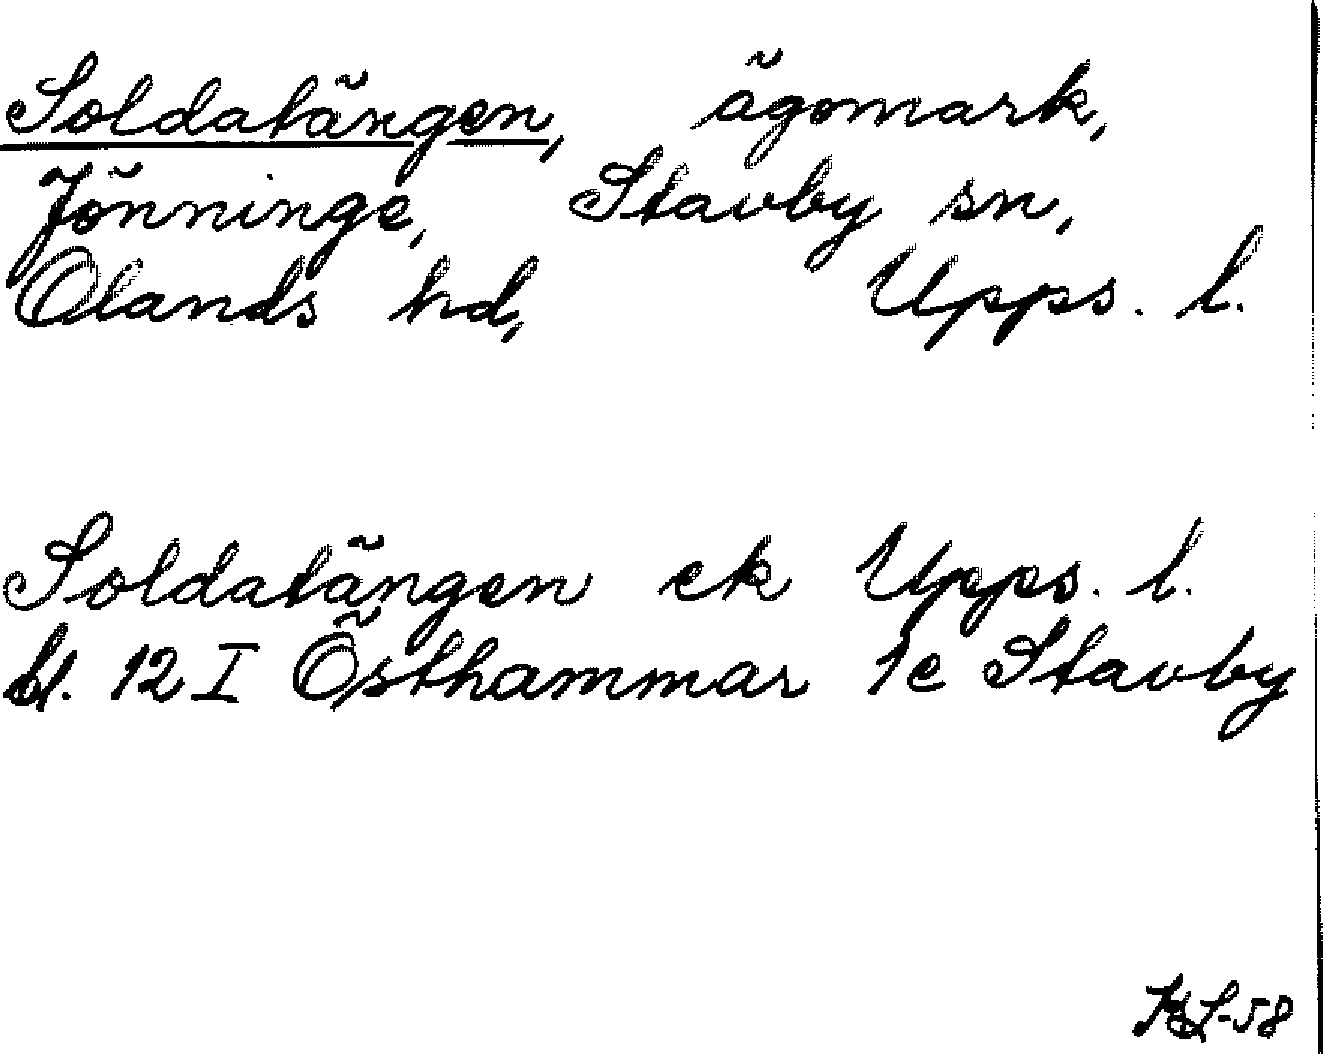 Soldatängen, ägomark,
Jönninge, Stavby sn,
Olands hd, Upps. l.
Soldatängen ek Upps. l.
bl. 12 I Östhammar 1e Stavby